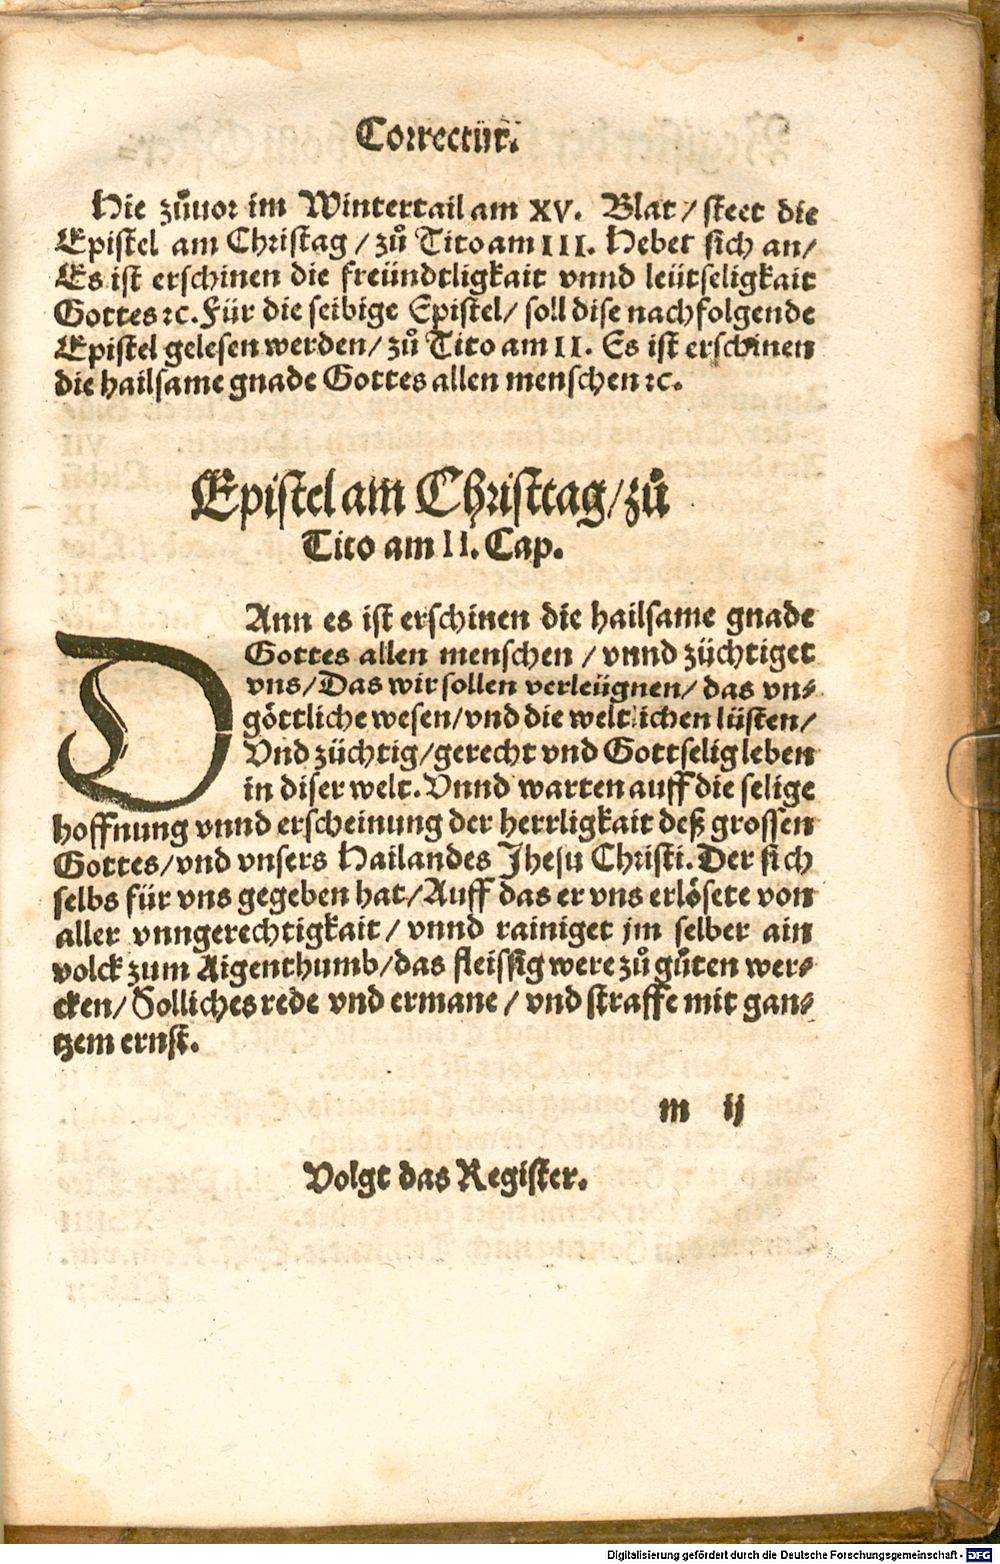 Correctür.
Hie zůuor im Wintertail am XV. Blat/ steet die
Epistel am Christag/ zů Tito am III. Hebet sich an/
Es ist erschinen die freündtligkait vnnd leütseligkait
Gottes ꝛc. Für die seibige Epistel/ soll dise nachfolgende
Epistel gelesen werden/ zů Tito am II. Es ist erschinen
die hailsame gnade Gottes allen menschen ꝛc.
Epistel am Christtag/ zů
Tito am II. Cap.
DAnn es ist erschinen die hailsame gnade
Gottes allen menschen / vnnd züchtiget
vns/ Das wir sollen verleügnen/ das vn-
göttliche wesen/ vnd die weltlichen lüsten/
Vnd züchtig/ gerecht vnd Gottselig leben
in diser welt. Vnnd warten auff die selige
hoffnung vnnd erscheinung der herrligkait deß grossen
Gottes/ vnd vnsers Hailandes Jhesu Christi. Der sich
selbs für vns gegeben hat/ Auff das er vns erlösete von
aller vnngerechtigkait/ vnnd rainiget jm selber ain
volck zum Aigenthumb/ das fleissig were zů gůten wer-
cken/ Solliches rede vnd ermane/ vnd straffe mit gan-
tzem ernst.
m ij
Volgt das Register.
Digitalisierung gefördert durch die Deutsche Forschungsgemeinschaft - DFG